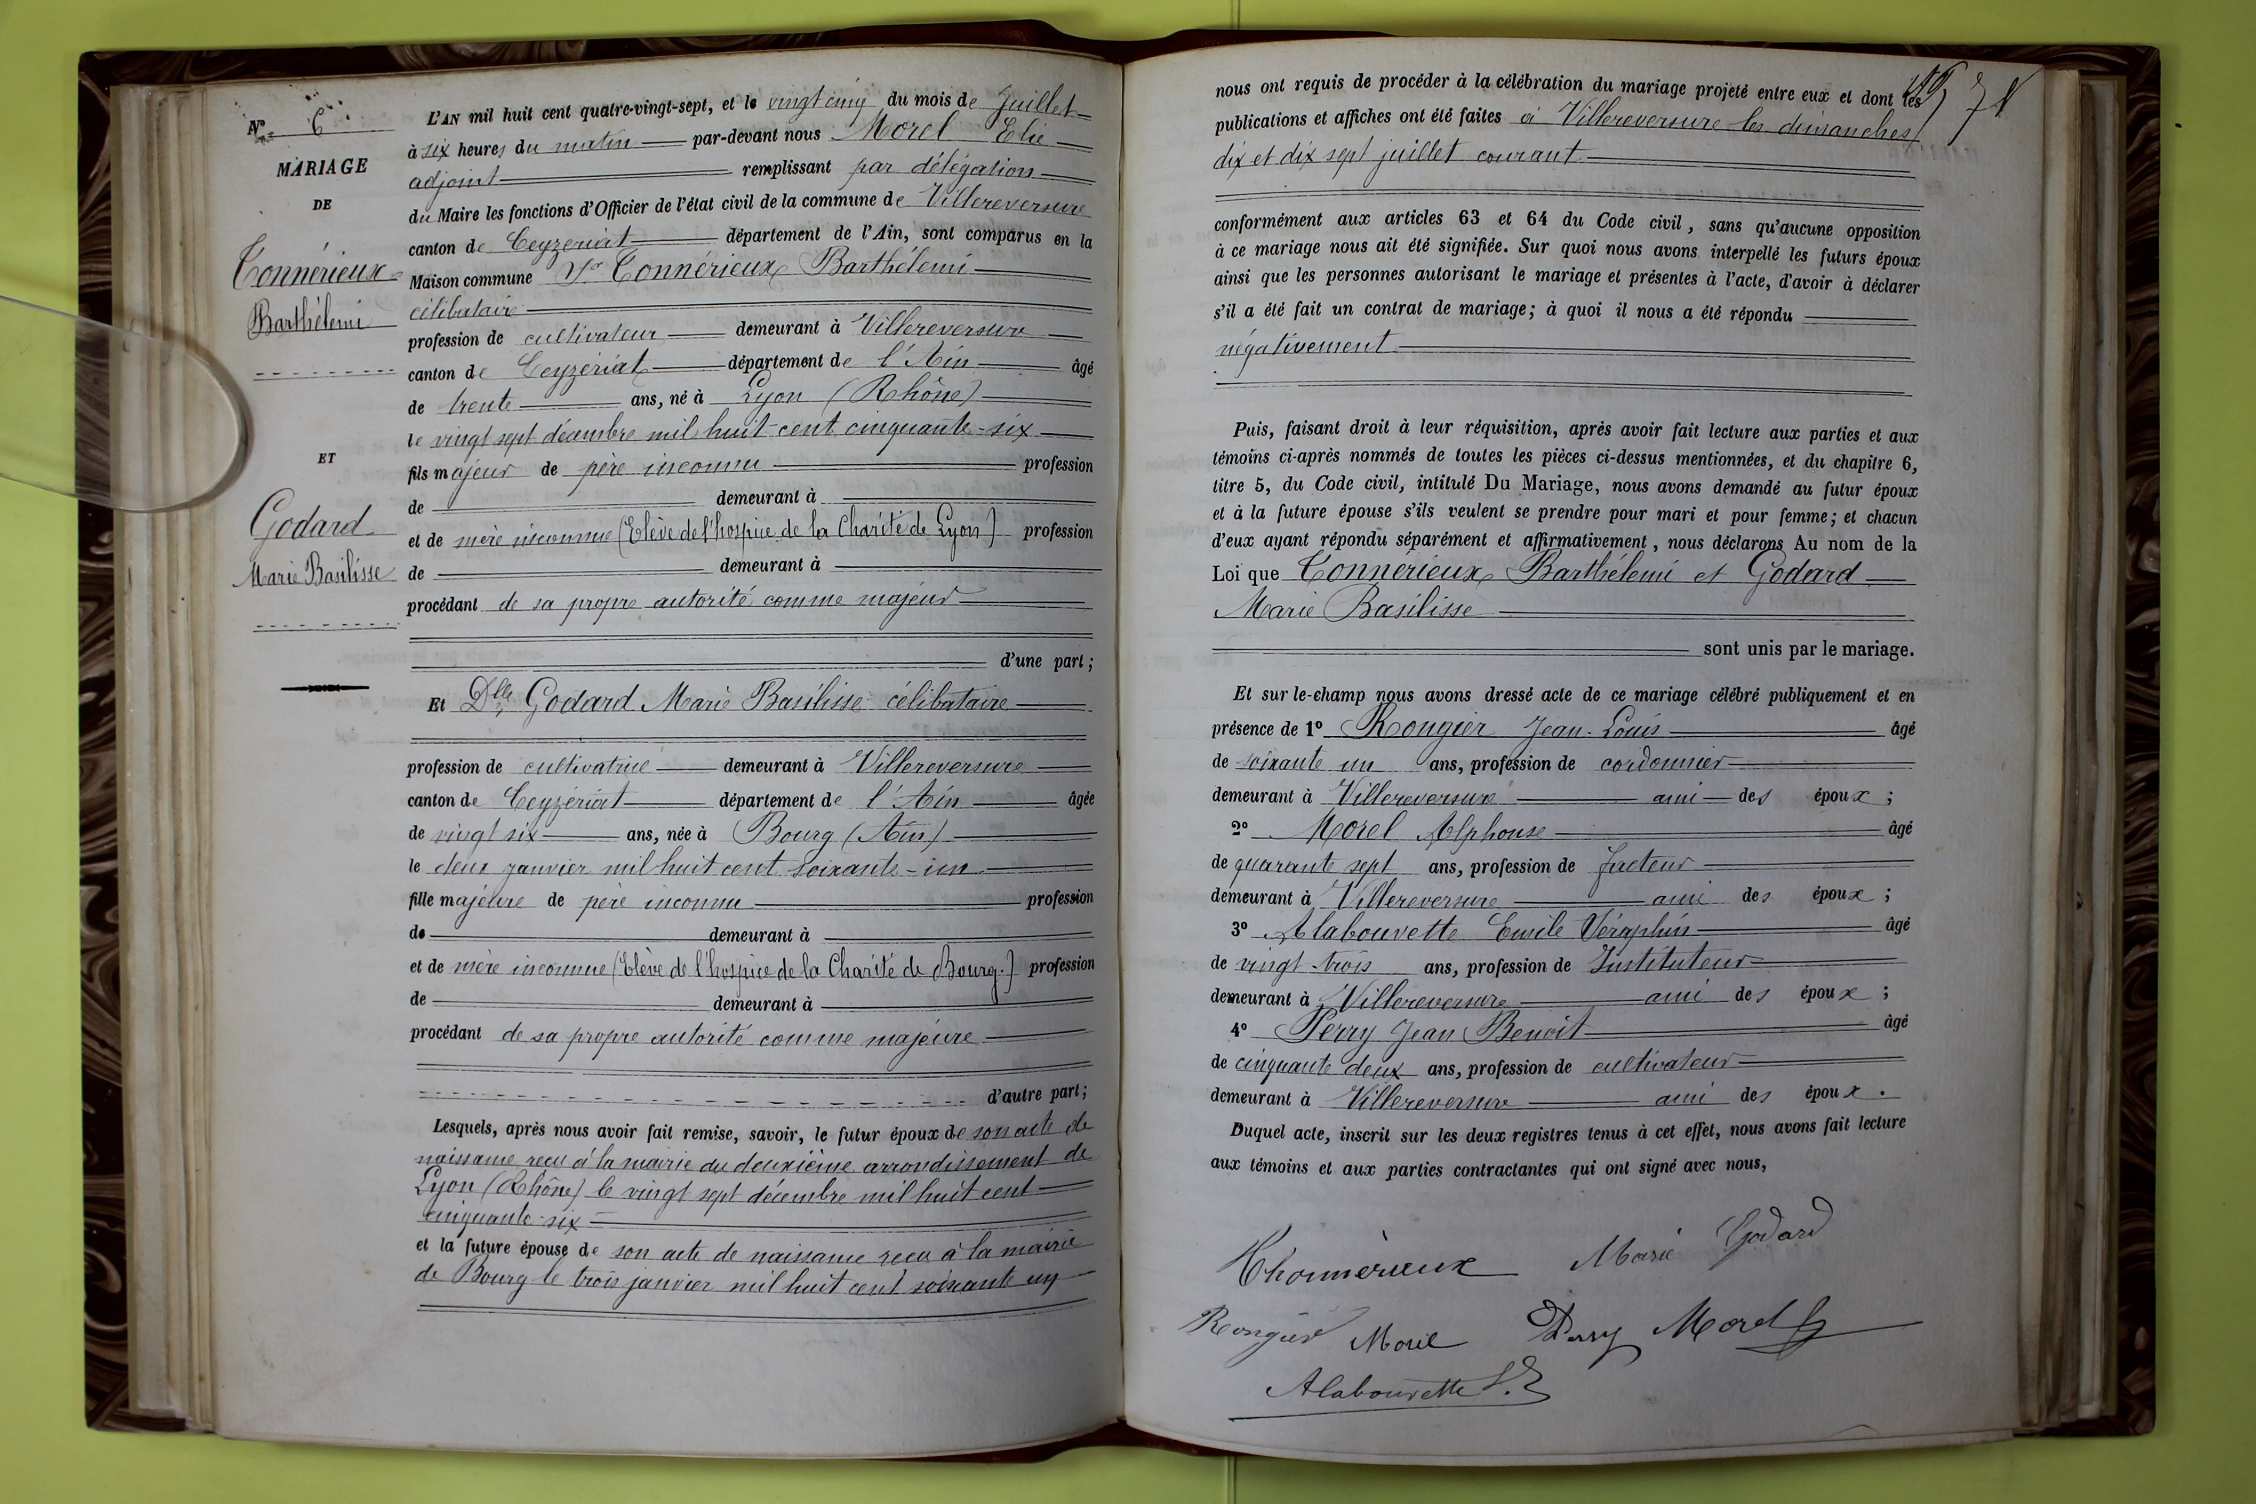 N° 6
MARIAGE
DE
Tonnérieux
Barthélemi
ET
Godard
Marie Basilisse
L'AN mil huit cent quatre-vingt-sept, et le vingt cinq du mois de Juillet
à six heures du matin par-devant nous Morel Elie
adjoint remplissant par délégation
du Maire les fonctions d'Officier de l'état civil de la commune de Villereversure
canton de Ceyzériat département de l'Ain, sont comparus en la
Maison commune Sr Tonnérieux Barthélemi
célibataire
profession de cultivateur demeurant à Villereversure
canton de Ceyzériat département de l'Ain âgé
de trente ans, né à Lyon (Rhône)
le vingt sept décembre mil huit cent cinquante-six
fils majeur de père inconnu profession
de demeurant à
et de mère inconnue (Elève de l'hospice de la Charité de Lyon) profession
de demeurant à
procédant de sa propre autorité comme majeur
d'une part;
Et Dlle Godard Marie Basilisse célibataire
profession de cultivatrice demeurant à Villereversure
canton de Ceyzériat département de l'Ain âgée
de vingt six ans, née à Bourg (Ain)
le deux janvier mil huit cent soixante-un
fille majeure de père inconnu profession
de demeurant à
et de mère inconnue (Elève de l'hospice de la Charité de Bourg.) profession
de demeurant à
procédant de sa propre autorité comme majeure
d'autre part;
Lesquels, après nous avoir fait remise, savoir, le futur époux de son acte de
naissance recu à la mairie du deuxième arrondissement de
Lyon (Rhône) le vingt sept décembre mil huit cent
cinquante-six
et la future épouse de son acte de naissance recu à la mairie
de Bourg le trois janvier mil huit cent soixante un
nous ont requis de procéder à la célébration du mariage projeté entre eux et dont les
publications et affiches ont été faites à Villereversure les dimanches
dix et dix sept juillet courant
conformément aux articles 63 et 64 du Code civil, sans qu'aucune opposition
à ce mariage nous ait été signifiée. Sur quoi nous avons interpellé les futurs époux
ainsi que les personnes autorisant le mariage et présentes à l'acte, d'avoir à déclarer
s'il a été fait un contrat de mariage; à quoi il nous a été répondu
négativement
Puis, faisant droit à leur réquisition, après avoir fait lecture aux parties et aux
témoins ci-après nommés de toutes les pièces ci-dessus mentionnées, et du chapitre 6,
titre 5, du Code civil, intitulé Du Mariage, nous avons demandé au futur époux
et à la future épouse s'ils veulent se prendre pour mari et pour femme; et chacun
d'eux ayant répondu séparément et affirmativement, nous déclarons Au nom de la
Loi que Tonnérieux Barthélemi et Godard
Marie Basilisse
sont unis par le mariage.
Et sur le-champ nous avons dressé acte de ce mariage célébré publiquement et en
présence de 1° Rongier Jean-Louis âgé
de soixante un ans, profession de cordonnier
demeurant à Villereversure ami des époux;
2° Morel Alphonse âgé
de quarante sept ans, profession de facteur
demeurant à Villereversure ami des époux;
3° Alabouvette Emile Séraphin âgé
de vingt-trois ans, profession de Instituteur
demeurant à Villereversure ami des époux;
4° Perry Jean Benoit âgé
de cinquante deux ans, profession de cultivateur
demeurant à Villereversure ami des époux.
Duquel acte, inscrit sur les deux registres tenus à cet effet, nous avons fait lecture
aux témoins et aux parties contractantes qui ont signé avec nous,
Thonnérieux Marie Godard
Rongier Morel Perry Morel
Alabouvette